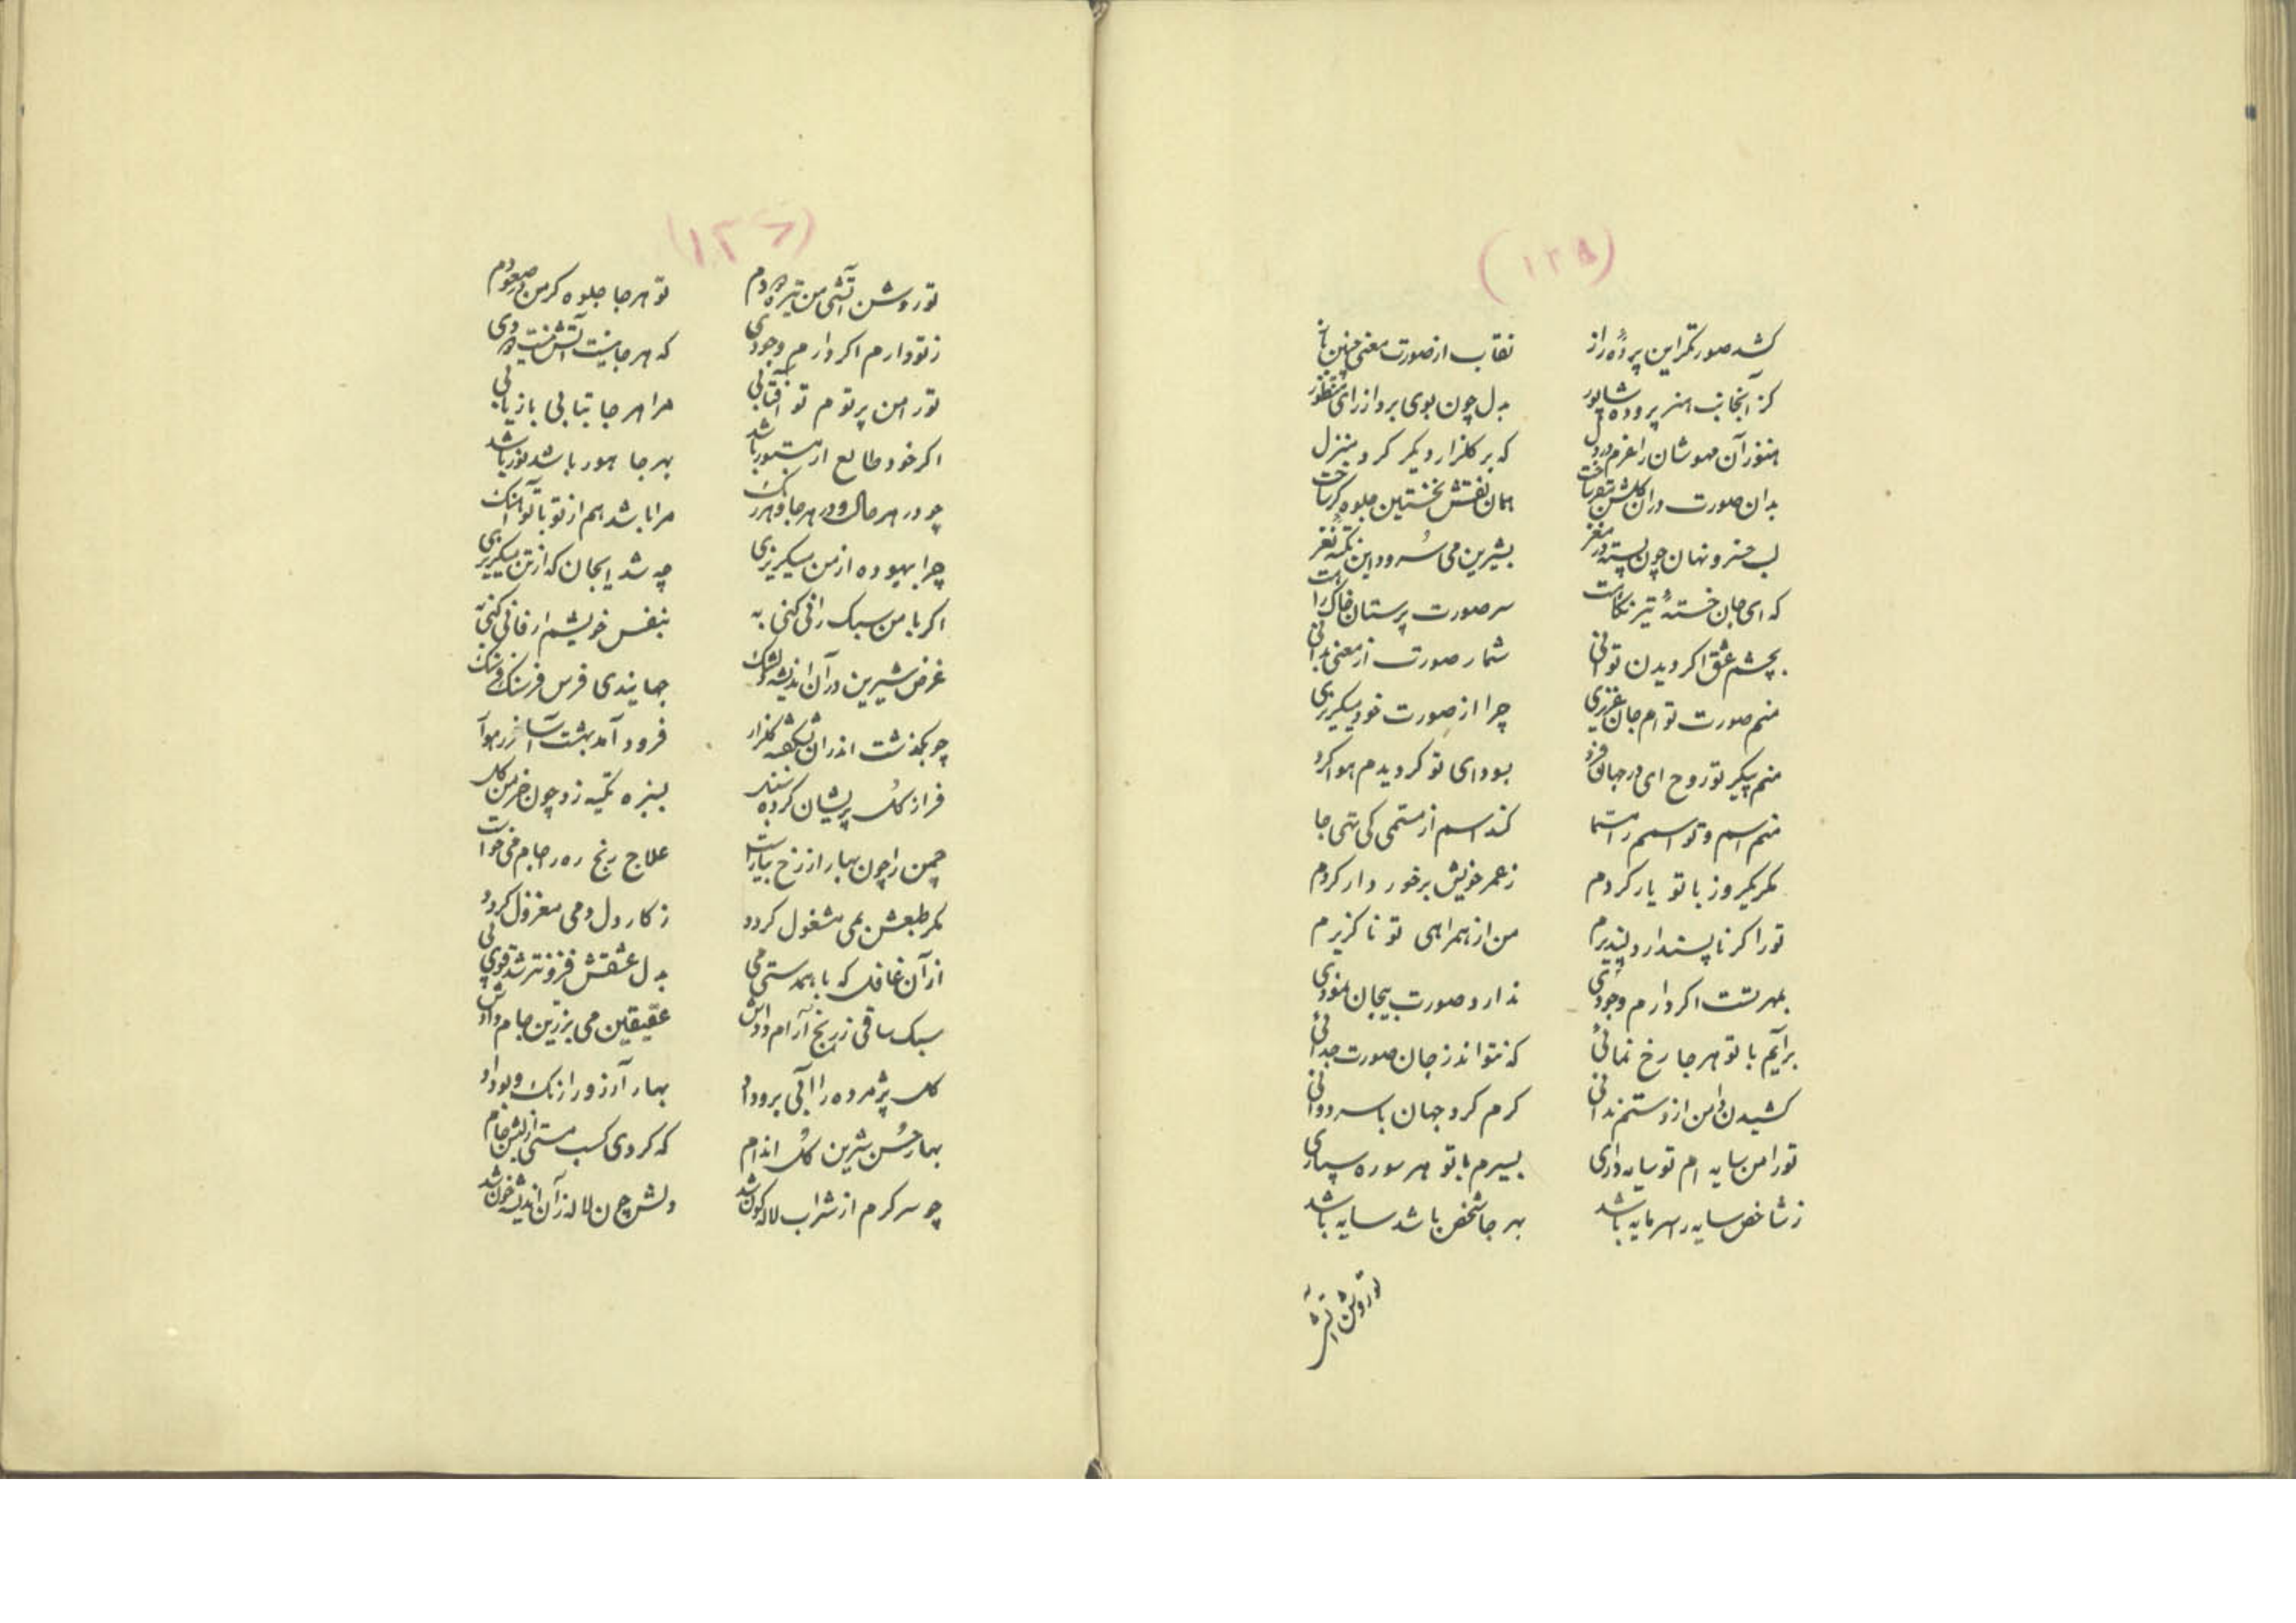 (۱۲۸)
کشد صورتگر این پردهٔ راز نقاب از صورت معنی چنین باز
کز آنجانب هنر پرورده شاپور بدل چون بوی برد از رای منظور
هنوز آن مهوشان را عزم در دل که بر گلزار دیگر کرد منزل
بدان صورت در آن گلشن بپرداخت همان نقش نخستین جلوه گر ساخت
لب خسرو نهان چون پسته در مغز بشیرین می سرود این نکتهٔ نغز
که ای جان خستهٔ تیر نگاهت سر صورت پرستان خاک راهت
بچشم عشق اگر دیدن توانی شمار صورت از معنی بدانی
منم صورت تو ام جان عزیزی چرا از صورت خود میگریزی
منم پیکر تو روح ای در جهان فرد بسودای تو گردیدم هوا گرد
منم اسم و تو اسمم را مسما کند اسم از مسمی کی تهی جا
مگر یکروز با تو یار گردم ز عمر خویش برخوردار گردم
تو را گر ناپسند ار دلپذیرم من از همراهی تو ناگزیرم
بمهر تست اگر دارم وجودی ندارد صورت بیجان نمودی
برآیم با تو هر جا رخ نمائی که نتواند ز جان صورت جدائی
کشیدن دامن از دستم ندانی گرم گرد جهان با سر دوانی
تو را من سایه ام تو سایه داری بسیرم با تو هر سو ره سپاری
ز شاخص سایه را سرمایه باشد بهر جا شخص باشد سایه باشد
تو روشن
(۱۲۶)
تو روشن آتشی من تیره دودم تو هر جا جلوه گر من در صعودم
ز تو دارم اگر دارم وجودی که هر جا نیست آتش نیست دودی
تو را من پرتوم تو آفتابی مرا هر جا بتابی بازیابی
اگر خود طالع ار مستور باشد بهر جا هور باشد نور باشد
چو در هر حال و در هر جا و هر رنگ مرا باشد هم از تو با تو آهنگ
چرا بیهوده از من میگریزی چه شد ایجان که از تن میگریزی
اگر با من سبک رانی کنی به بنفس خویشم ار فانی کنی به
غرض شیرین در آن اندیشه جهاندی فرس فرسنگ فرسنگ
چو بگذشت اندر آن بشکفته گلزار فرود آمد بهشت آسا
فراز گل پریشان کرده سنبل بسبزه تکیه زد چون خرمن گل
چمن را چون بهار از رخ بیاراست علاج رنج ره را جام می خواست
مگر طبعش بمی مشغول گردد ز کار دل دمی معزول گردد
از آن غافل که با همدستی می بدل عشقش فزونتر شد قوی پی
سبک ساقی ز رنج آرام دادش عقیقین می بزرین جام دادش
گل پژمرده را آبی برو داد بهار آرزو را رنگ و بو داد
بهار حسن شیرین گل اندام که کردی کسب مستی از لبش جام
چو سرگرم از شراب لاله گون شد دلش چون لاله زان اندیشه خون شد